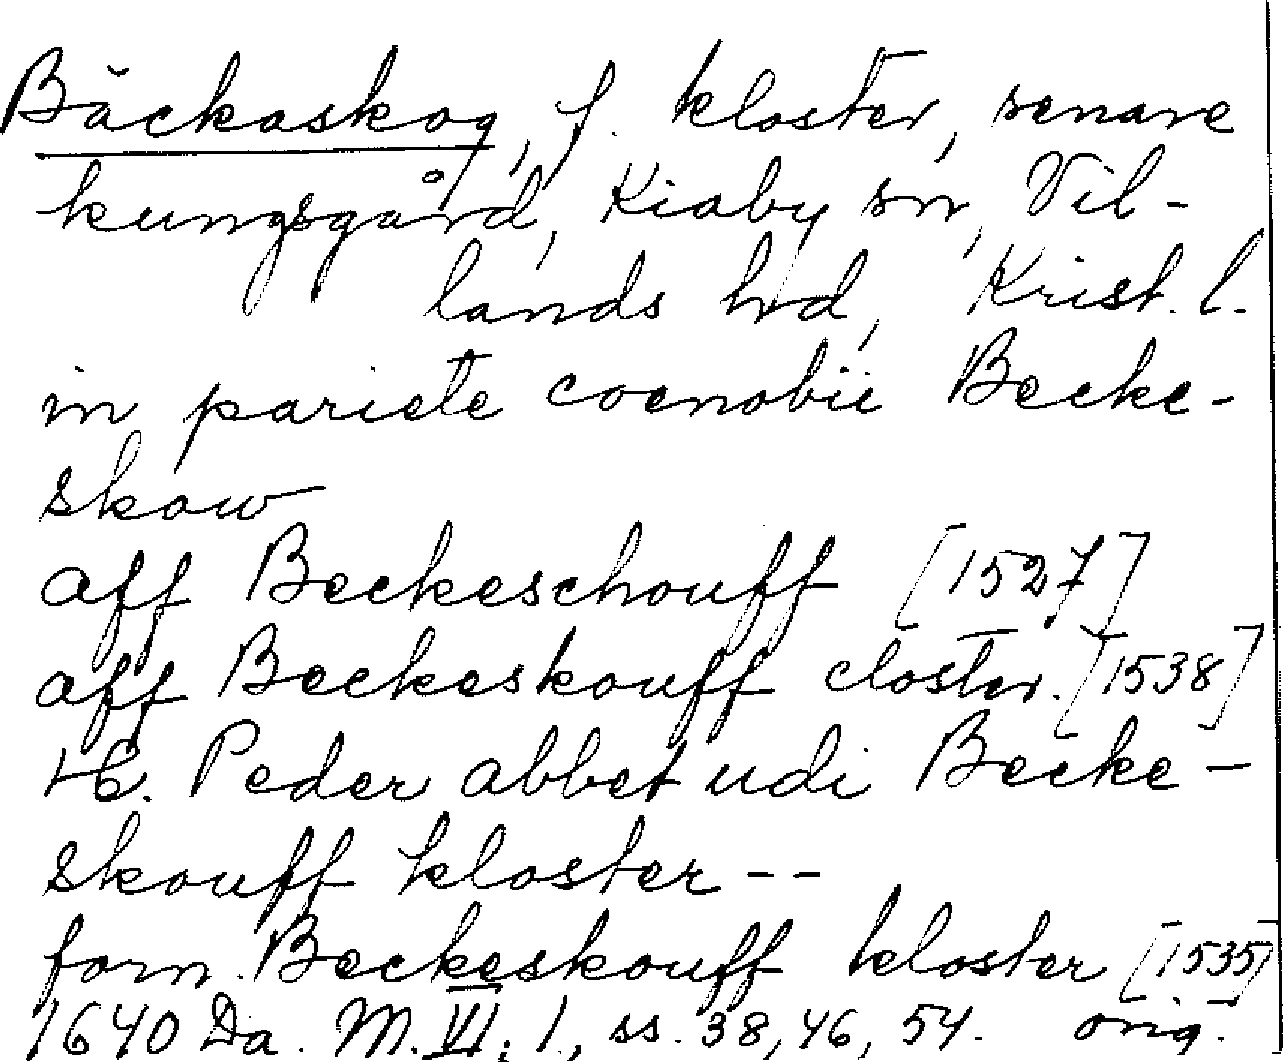 Bäckaskog, f. kloster, senare
kungsgård, Kiaby sn, Vil-
lands hd, Krist. l.
in pariete coenobii Becke-
skow
aff Beckeschouff [1527]
aff Beckeskouff closter. [1538]
H. Peder abbet udi Becke-
skouff kloster --
forn. Beckeskouff kloster [1535]
1640 Da. M. VI. 1, ss. 38, 46, 54. orig.